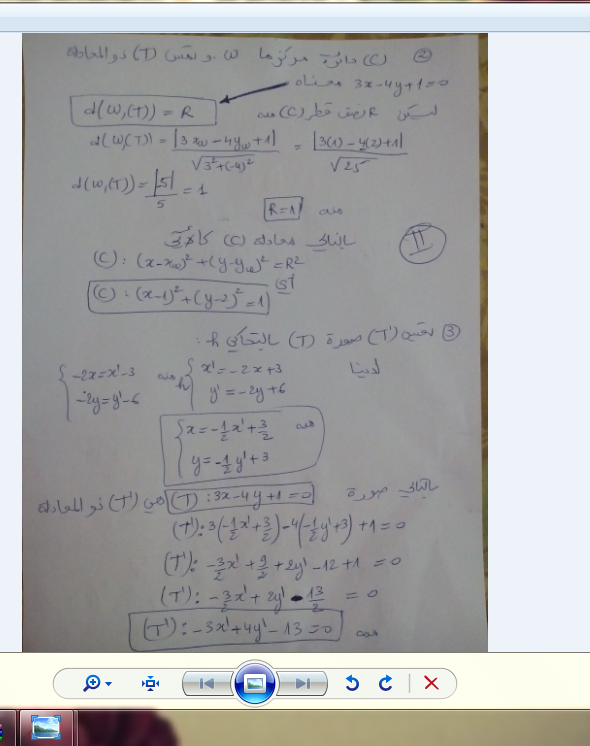 ② (C) دائرة مركزها W و تمس (T) ذو المعادلة
3x-4y+1=0 معناه
d(W,(T)) = R
لیکن R نصف قطر (C) منه
d(W,(T)) = |3x_W - 4y_W + 1| / √(3²+(-4)²) = |3(1) - 4(2) + 1| / √25
d(W,(T)) = |5| / 5 = 1
منه R=1
II
بالتالي معادلة (C) كالآتي
(C) : (x-x_W)² + (y-y_W)² = R²
أي
(C) : (x-1)² + (y-2)² = 1
③ تعيين (T') صورة (T) بالتحاكي h :
لدينا h { x' = -2x+3 منه { -2x = x'-3
y' = -2y+6 -2y = y'-6
منه { x = -1/2 x' + 3/2
y = -1/2 y' + 3
بالتالي صورة (T) : 3x-4y+1=0 هي (T') ذو المعادلة
(T') : 3(-1/2 x' + 3/2) - 4(-1/2 y' + 3) + 1 = 0
(T') : -3/2 x' + 9/2 + 2y' - 12 + 1 = 0
(T') : -3/2 x' + 2y' - 13/2 = 0
منه (T') : -3x' + 4y' - 13 = 0